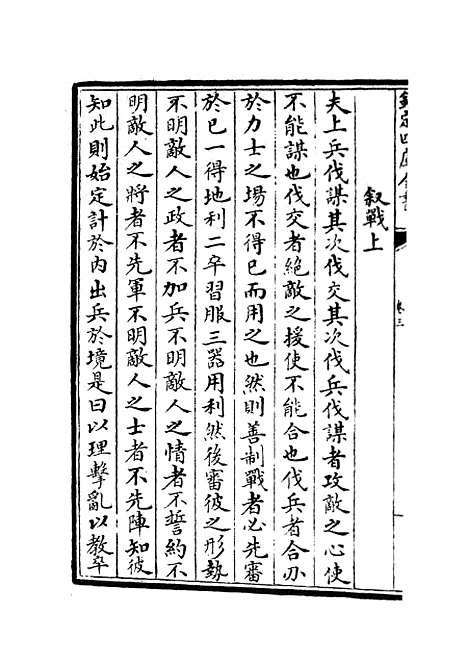 欽定四庫全書
卷三
叙戰上
夫上兵伐謀其次伐交其次伐兵伐謀者攻敵之心使
不能謀也伐交者絶敵之援使不能合也伐兵者合刃
於力士之場不得已而用之也然則善制戰者必先審
於已一得地利二卒習服三器用利然後審彼之形勢
不明敵人之政者不加兵不明敵人之情者不誓約不
明敵人之將者不先軍不明敵人之士者不先陣知彼
知此則始定計於內出兵於境是曰以理擊亂以教卒